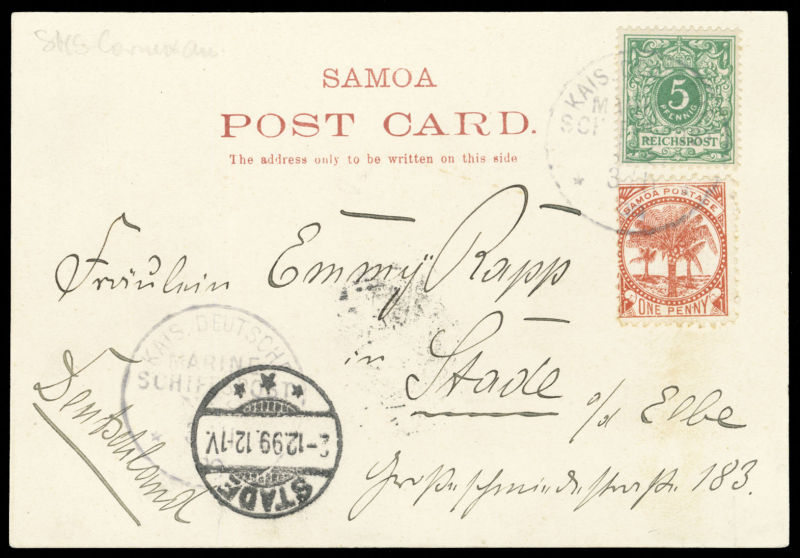 SMS
SAMOA
POST CARD.
The address only to be written on this side
KAIS.
SCH
3
5
PFENNIG
REICHSPOST
SAMOA POSTAGE
ONE PENNY
Fräulein Emmy Rapp
in Stade a/d Elbe
Große Schmiedestraße 183.
Deutschland
KAIS. DEUTSCHE
MARINE
SCHIFFSPOST
STADE
2-12.99.12-1V.